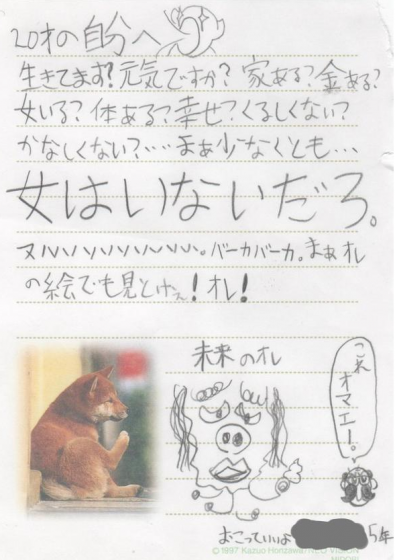 20才の自分へ
生きてます?元気ですか?家ある?金ある?
女いる?体ある?幸せ?くるしくない?
かなしくない?‥‥まぁ少なくとも…
女はいないだろ。
バーカバーカ。まぁオレ
の絵でも見とけぇ!オレ!
未来のオレ
これ
オマエー。
おこっていいよ
5年
© 1997 Kazuo Honzawa
MIDORI